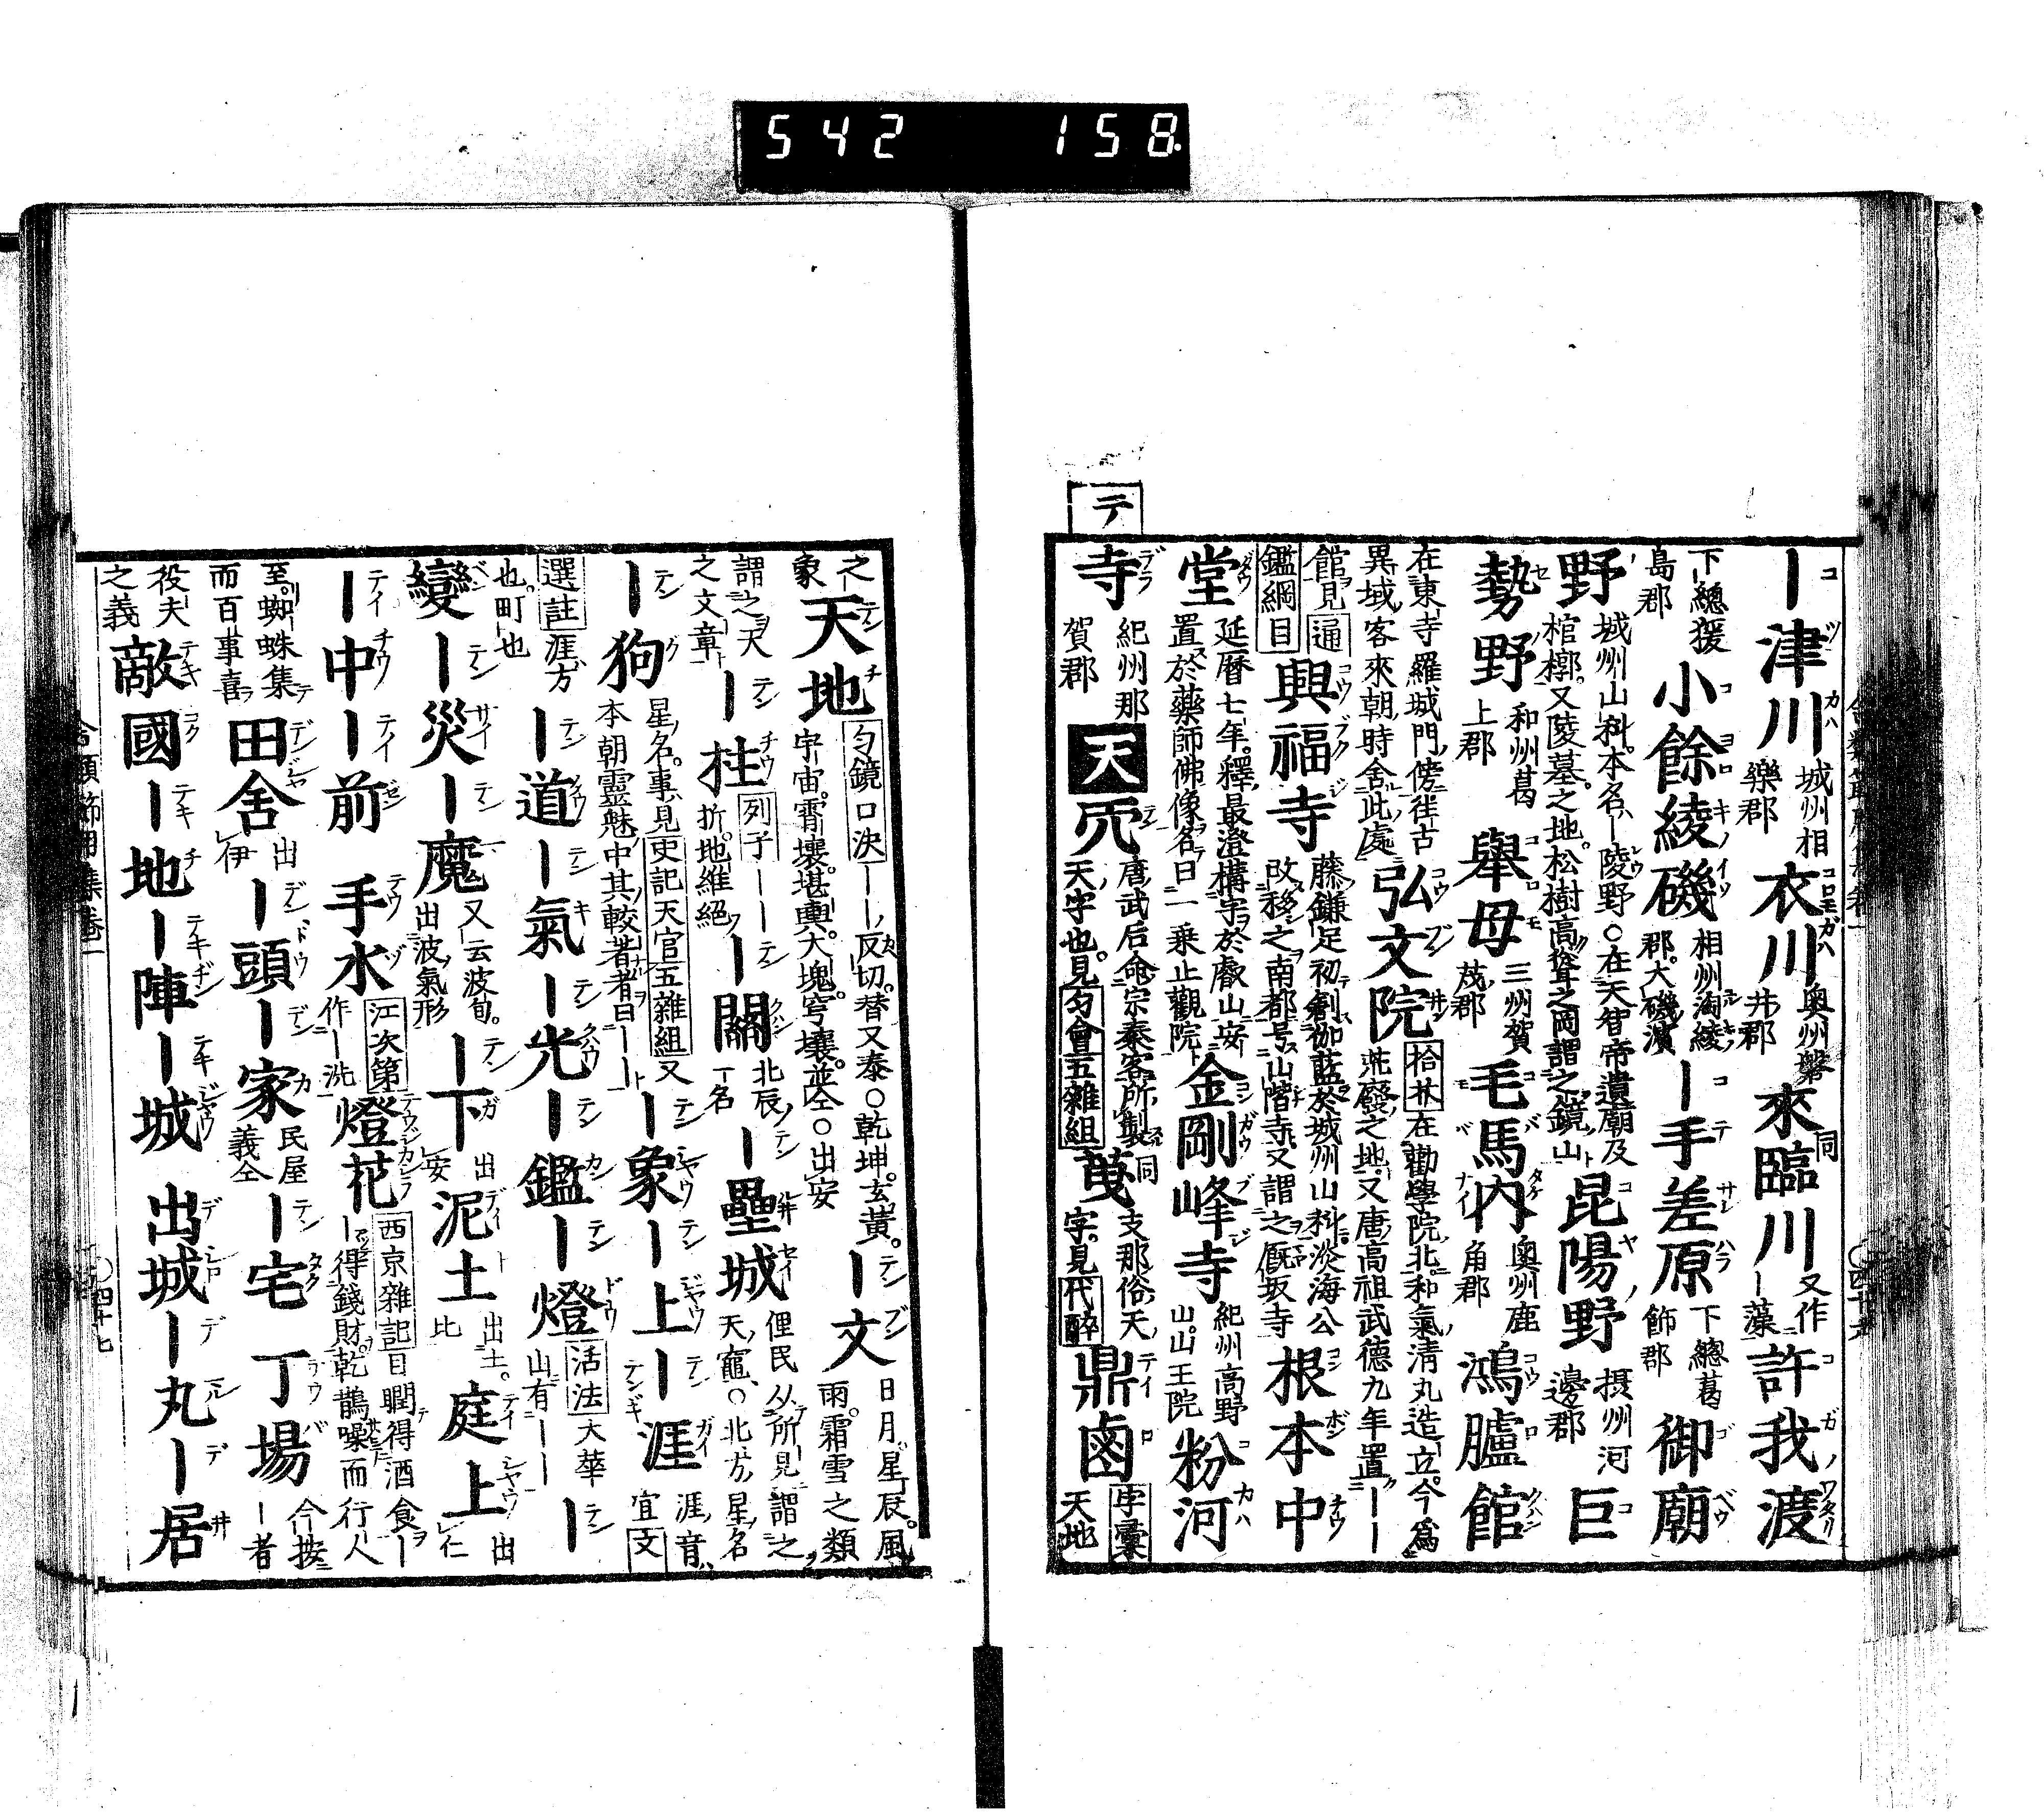 542 158.
｜津川 城州相樂郡 衣川 奥州磐井郡 來臨川 同 又作｜藻 許我渡
下總猨島郡 小餘綾磯 相州淘綾郡大磯濱 ｜手差原 下總葛飾郡 御廟
野 城州山科本名｜陵野○在天智帝遺廟及棺槨又陵墓之地松樹高聳之岡謂之鏡山 昆陽野 摂州河邊郡 巨
勢野 和州葛上郡 擧母 三州賀茂郡 毛馬内 奥州鹿角郡 鴻臚館
在東寺羅城門傍往古異域客來朝時舍此處 弘文院 拾芥在勸學院北和氣清丸造立今爲荒廢之地又唐高祖武德九年置｜｜
館見通鑑綱目 興福寺 藤鎌足初創伽藍於城州山科淡海公改移之南都号山階寺又謂之厩坂寺 根本中
堂 延曆七年釋最澄構宇於叡山安置於藥師佛像名曰一乗止觀院 金剛峰寺 紀州高野山山王院 粉河
テ
寺 紀州那賀郡 天 兲 唐武后命宗秦客所製天字也見匀會五雜組 𦮼 同 支那俗天字見代醉 鼎鹵 字彙天地
之象 天地 匀鏡口決｜｜反切替又泰○乾坤玄黃宇宙霄壤堪輿大塊穹壤並仝○出安 ｜文 日月星辰風雨霜雪之類
謂之天之文章 ｜柱 列子｜｜折地維絕 ｜關 北辰｜名 ｜壘城 俚民从所見謂之天竈○北方星名
｜狗 星名事見史記天官五雜組又本朝靈魅中其較著者曰｜｜ ｜象｜上｜涯 涯音宜文
選註涯方也町也 ｜道｜氣｜光｜鑑｜燈 活法大華山有｜｜ ｜
變｜災｜魔 又云波旬出波氣形 ｜下 出安 泥土 出土比 庭上 出仁
｜中｜前 手水 江次第作｜洗 燈花 西京雜記目瞤得酒食｜｜得錢財乾鵲噪而行人
至蜘蛛集而百事喜 田舍 出伊 ｜頭｜家 民屋義仝 ｜宅 丁場 今按｜者
役夫之義 敵國｜地｜陣｜城 出城｜丸｜居
合類節用集卷一 ○四十七